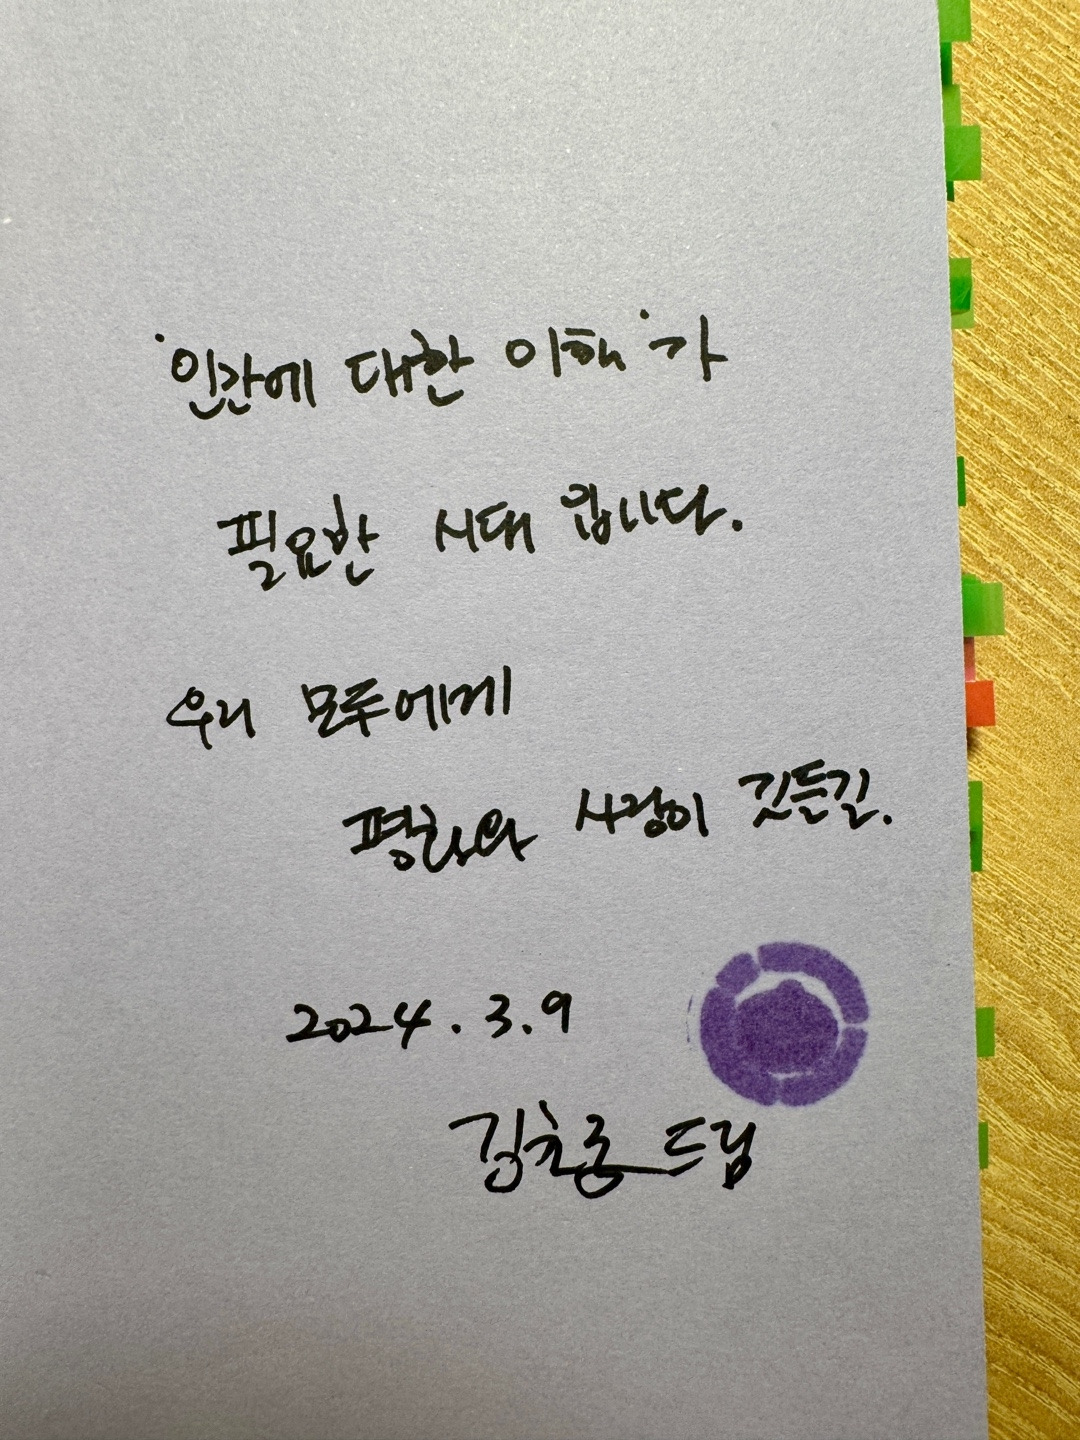 '인간에 대한 이해'가
필요한 시대입니다.
우리 모두에게
평화와 사랑이 깃들길.
2024. 3. 9
드림